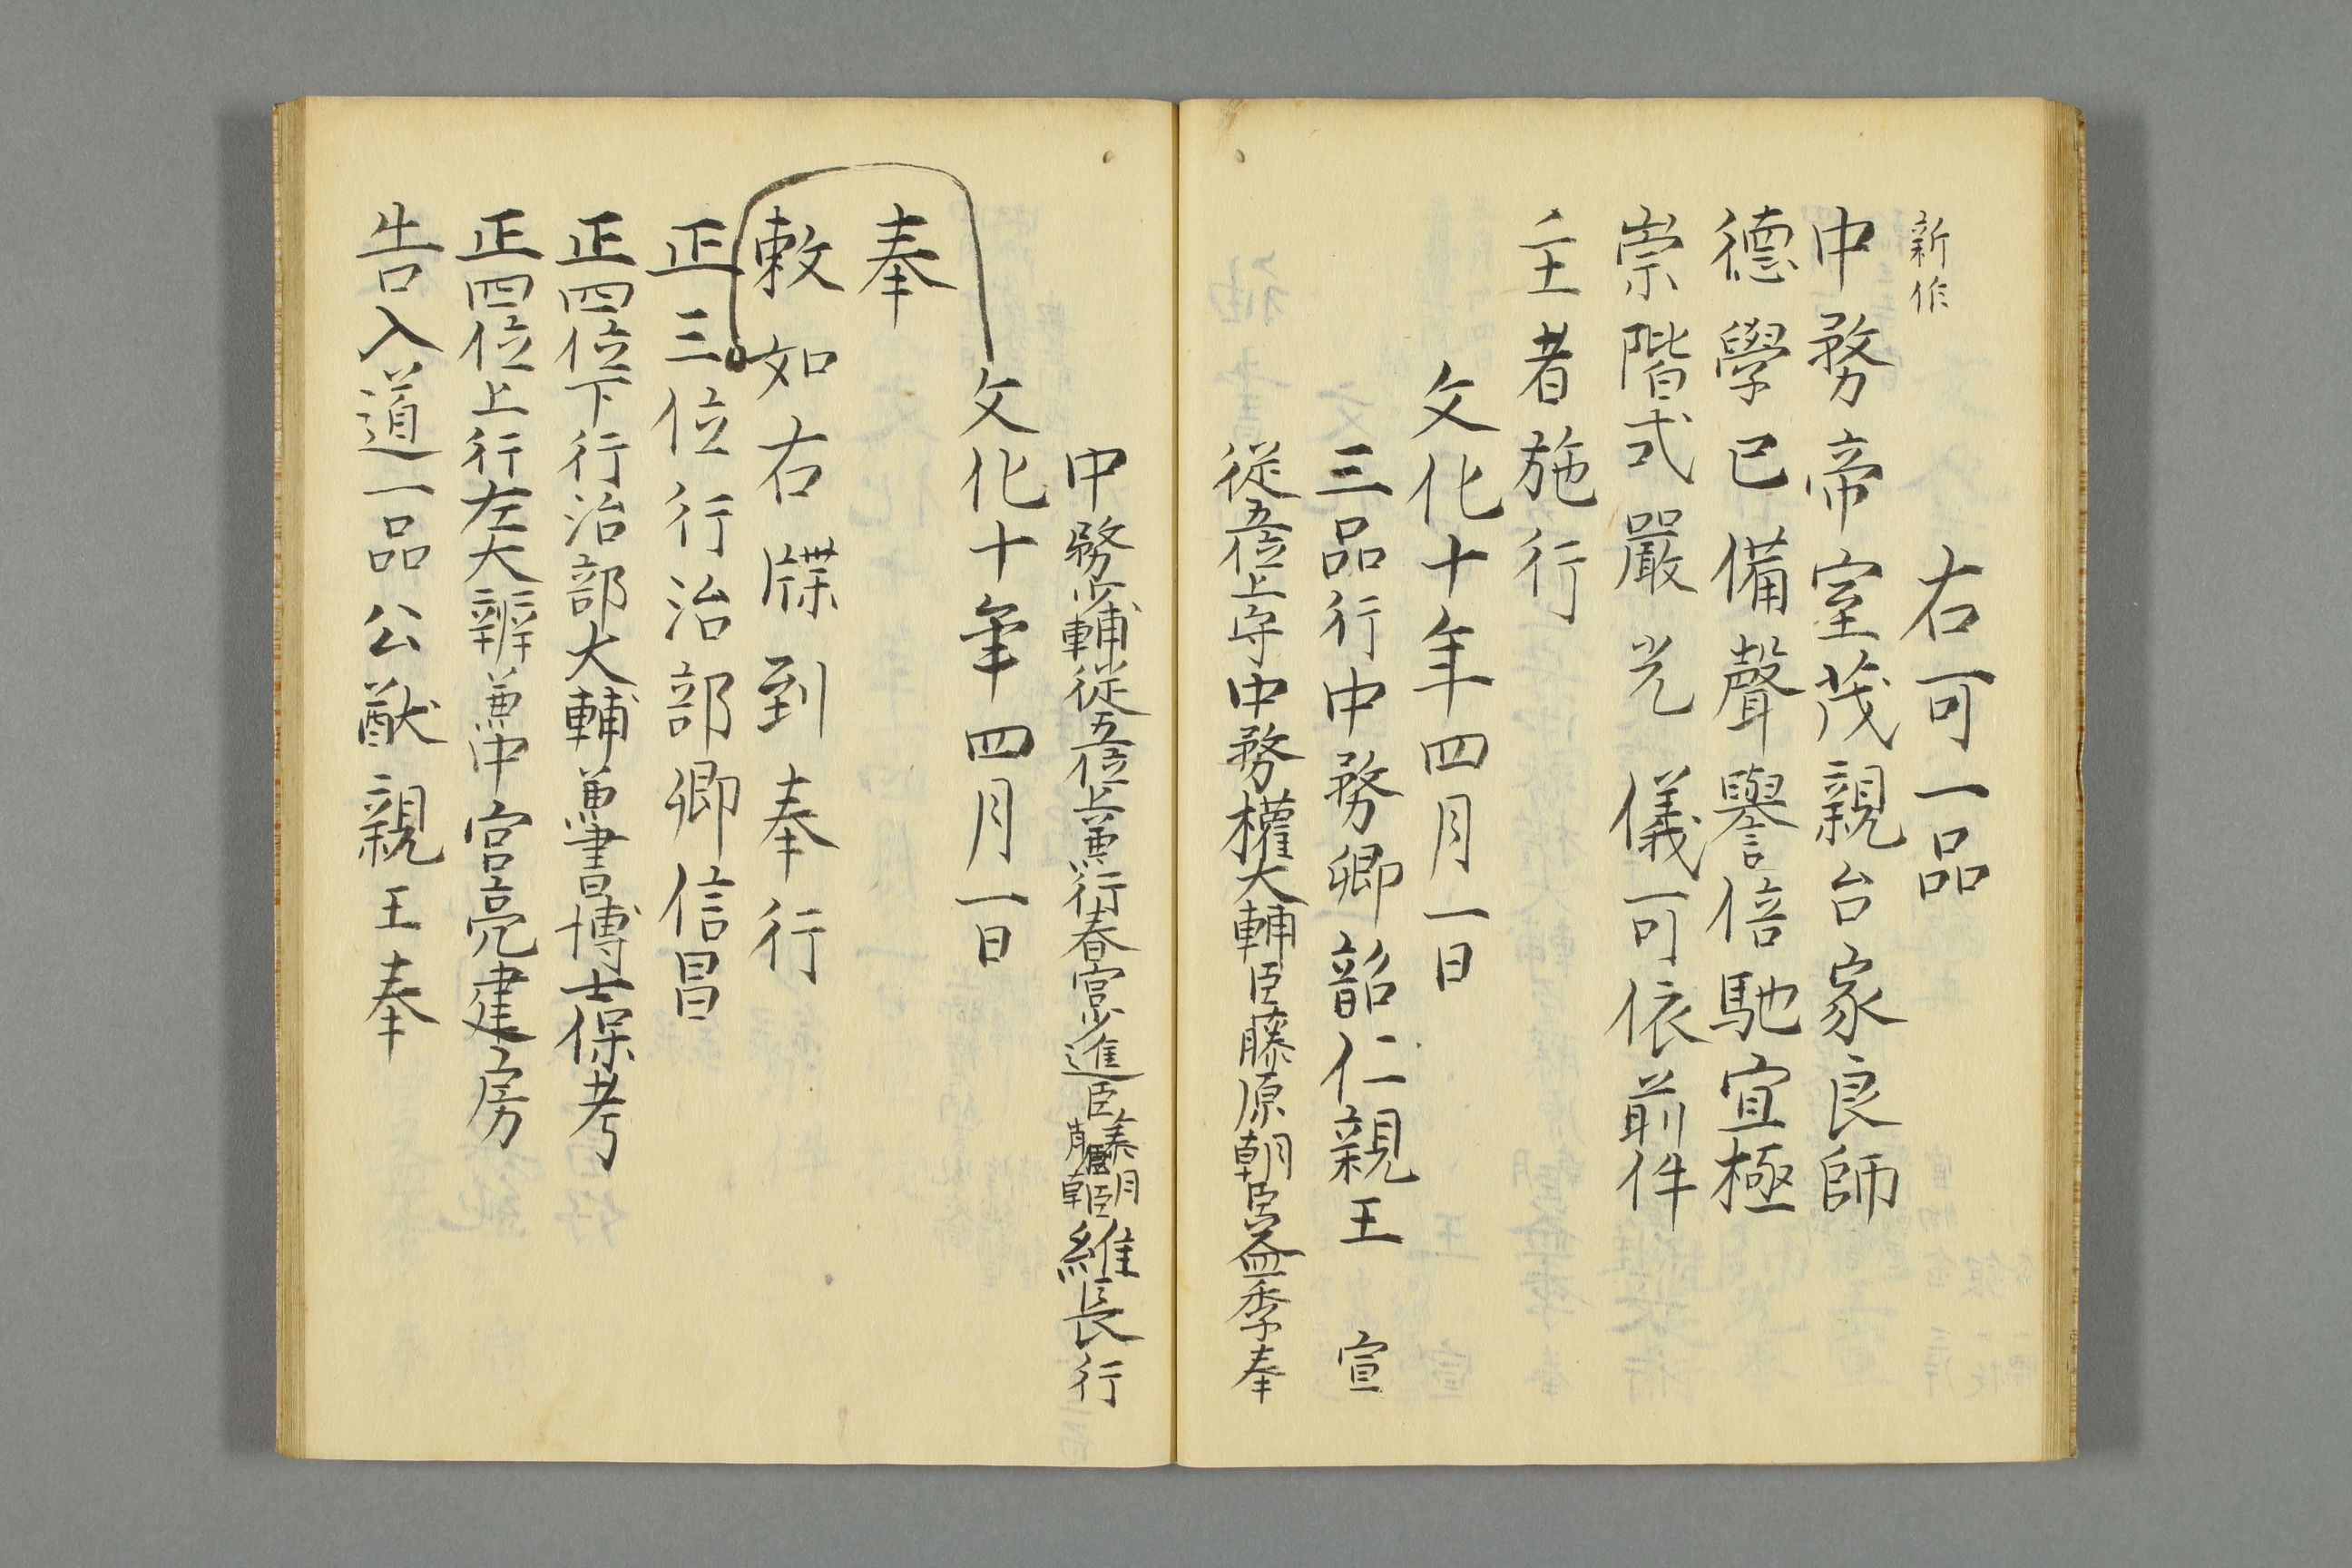 新作
右可一品
中務帝室茂親台家良師
德學已備聲譽倍馳宜極
崇階式嚴光儀可依前件
主者施行
文化十年四月一日
三品行中務卿韶仁親王 宣
從五位上守中務權大輔臣藤原朝臣益季奉
中務少輔從五位上兼行春宮少進臣藤原朝臣維長行
文化十年四月一日
奉
敕如右牒到奉行
正三位行治部卿信昌
正四位下行治部大輔兼書博士保考
正四位上行左大辨兼中宮亮建房
告入道一品公猷親王奉